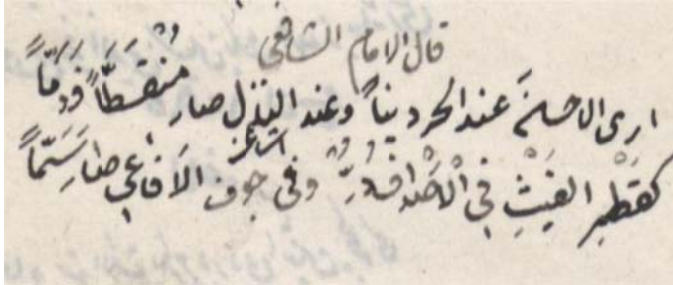 قال الامام الشافعى
ارى الاحسانَ عند الحر ديناً وعند النذل صار مُنْقَصَةً وَذَمّاً
كقَطْرِ الغَيْثِ فِي الْاَصْدافِ دُرٌّ وفى جوف الاَفاعِي صارَ سَمّاً